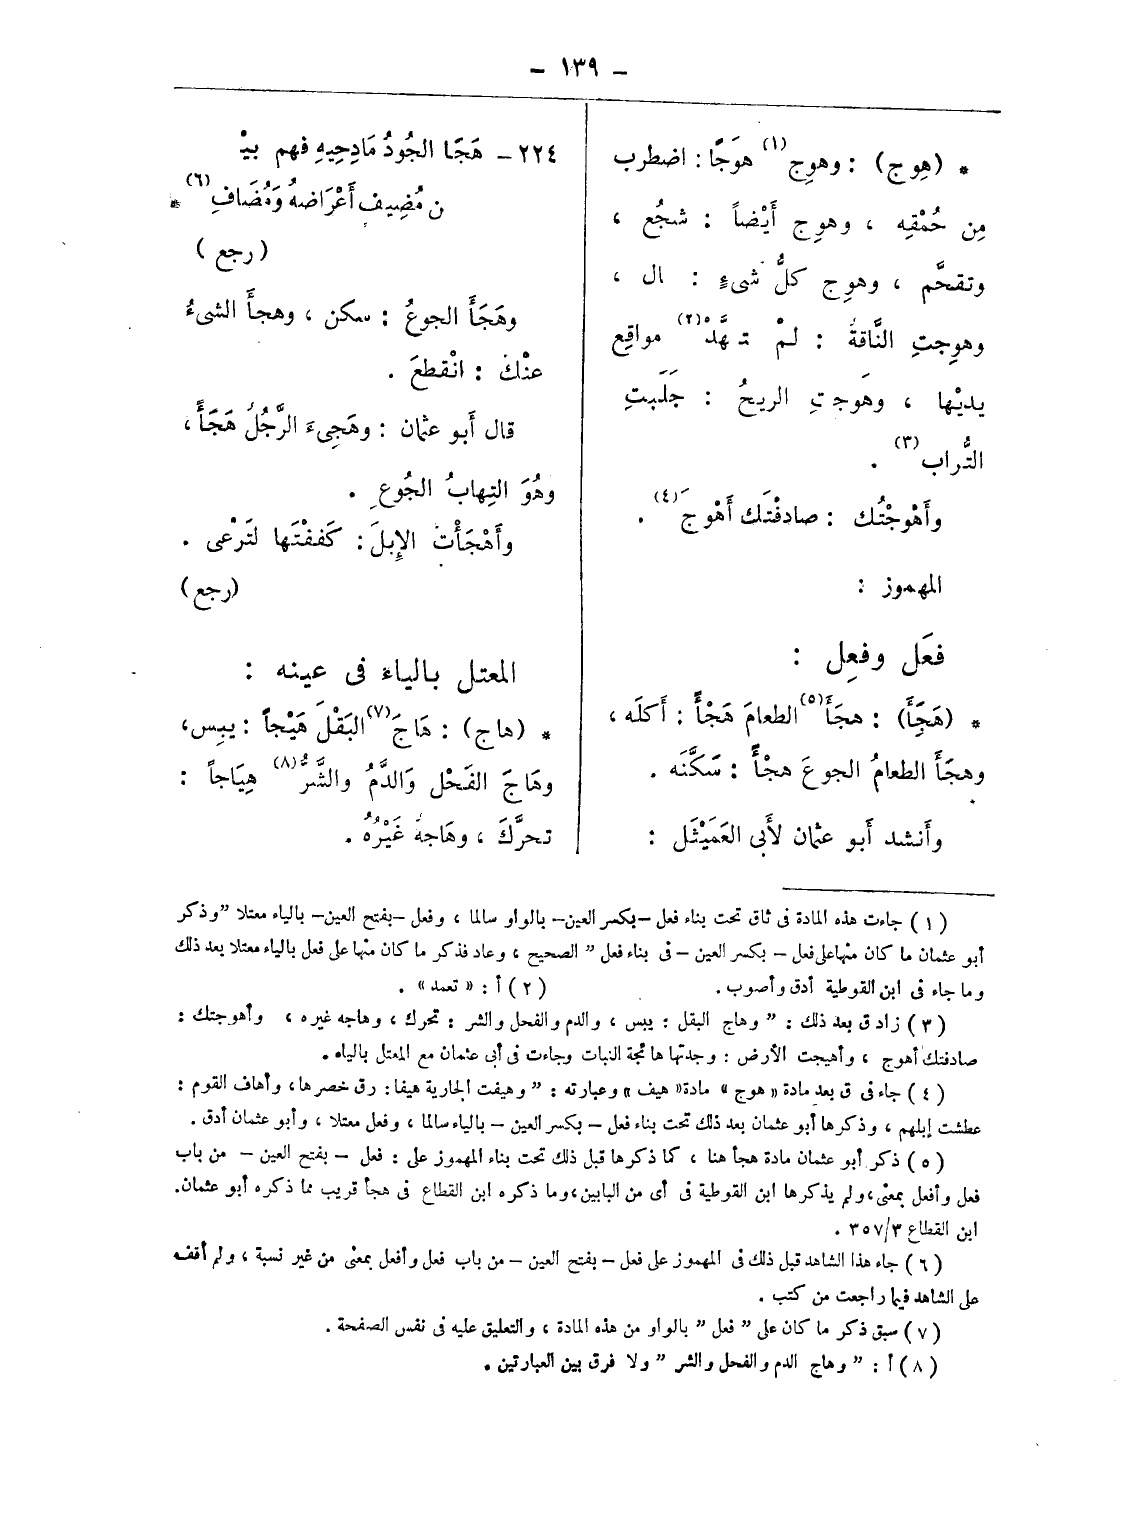 - ١٣٩ -
* (هوِج) : وهوِج(١) هوَجًا : اضطرب
مِن حُمْقِه ، وهوِج أَيْضاً : شجُع ،
وتقحَّم ، وهوِج كلُّ شىءٍ : ال ،
وهوِجتِ النَّاقةُ : لمْ تـهَّدْ(٢) مواقِع
يديْها ، وهَوجتِ الريحُ : جَلَبتِ
التُّراب(٣) .
وأَهْوجْتُك : صادفْتَك أَهْوجَ(٤) .
المهموز :
فعَل وفعِل :
* (هَجَأَ) : هجَأَ(٥) الطعامَ هَجْأً : أَكلَه ،
وهجَأَ الطعامُ الجوعَ هجْأً : سَكَّنَه .
وأَنشد أَبو عثمان لأَبى العَمَيْثَل :
٢٢٤ - هَجَا الجُودُ مَادِحِيهِ فهم بيْـ
ن مُضِيفٍ أَعْرَاضهُ وَمُضَافِ(٦) *
( رجع )
وهَجَأَ الجوعُ : سكن ، وهجأَ الشىءُ
عنْكَ : انْقطعَ .
قال أَبو عثمان : وهَجِىءَ الرَّجُلُ هَجَأً ،
وهُوَ التِهابُ الجُوعِ .
وأَهْجَأْتُ الإِبلَ : كَففْتَها لتَرْعى .
(رجع)
المعتل بالياء فى عينه :
* (هاج) : هَاجَ(٧) البَقْلُ هَيْجاً : يبِس ،
وهَاجَ الفَحْل وَالدَّمُ والشَّرُّ(٨) هِيَاجاً :
تحرَّكَ ، وهَاجهُ غَيْرُهُ .
(١) جاءت هذه المادة فى ثاق تحت بناء فعل -بكسر العين- بالواو سالما ، وفعل -بفتح العين- بالياء معتلا "وذكر
أبو عثمان ما كان منها على فعل - بكسر العين - فى بناء فعل " الصحيح ، وعاد فذكر ما كان منها على فعل بالياء معتلا بعد ذلك
وما جاء فى ابن القوطية أدق وأصوب. (٢) أ : « تعمد » .
(٣) زاد ق بعد ذلك : " وهاج البقل : يبس ، والدم والفحل والشر : تحرك ، وهاجه غيره ، وأهوجتك :
صادفتك أهوج ، وأهيجت الأرض : وجدتها هائجة النبات وجاءت فى أبى عثمان مع المعتل بالياء .
(٤) جاء فى ق بعد مادة « هوج » مادة « هيف » وعبارته : " وهيفت الجارية هيفا : رق خصرها ، وأهاف القوم :
عطشت إبلهم ، وذكرها أبو عثمان بعد ذلك تحت بناء فعل - بكسر العين - بالياء سالما ، وفعل معتلا ، وأبو عثمان أدق .
(٥) ذكر أبو عثمان مادة هجأ هنا ، كما ذكرها قبل ذلك تحت بناء المهموز على : فعل - بفتح العين - من باب
فعل وأفعل بمعنى ، ولم يذكرها ابن القوطية فى أى من البابين ، وما ذكره ابن القطاع فى هجأ قريب مما ذكره أبو عثمان.
ابن القطاع ٣/٣٥٧ .
(٦) جاء هذا الشاهد قبل ذلك فى المهموز على فعل - بفتح العين - من باب فعل وأفعل بمعنى من غير نسبة ، ولم أقف
على الشاهد فيما راجعت من كتب .
(٧) سبق ذكر ما كان على " فعل " بالواو من هذه المادة ، والتعليق عليه فى نفس الصفحة .
(٨) أ : " وهاج الدم والفحل والشر " ولا فرق بين العبارتين .